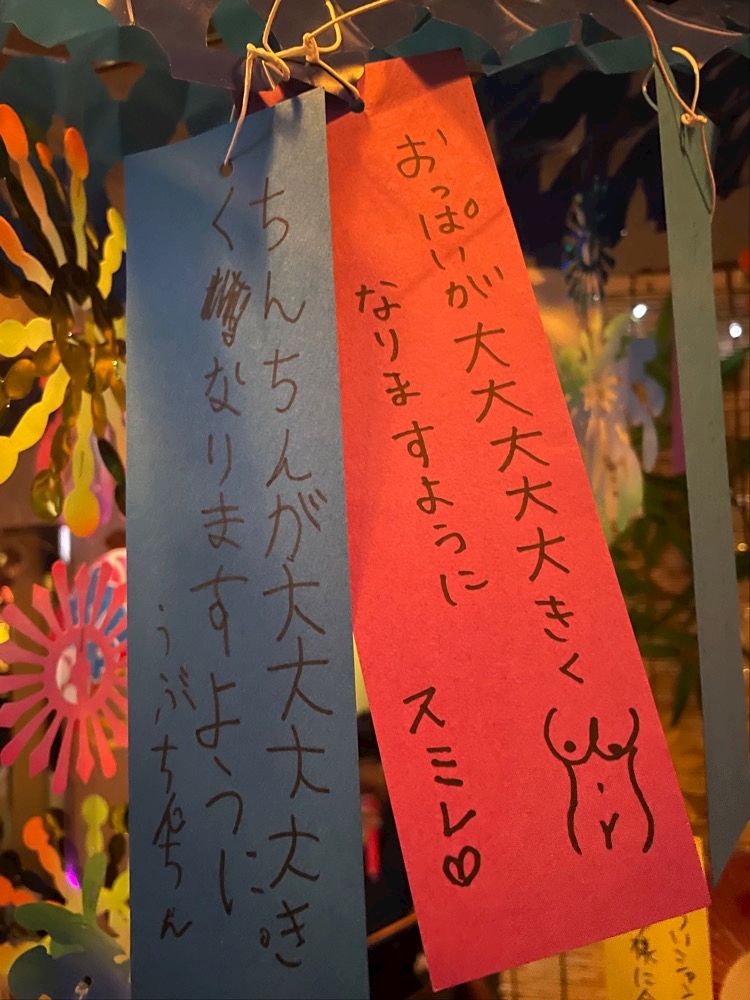 おっぱいが大大大大大きく
なりますように
スミレ♡
ちんちんが大大大大き
くなりますように
うぶちんちん